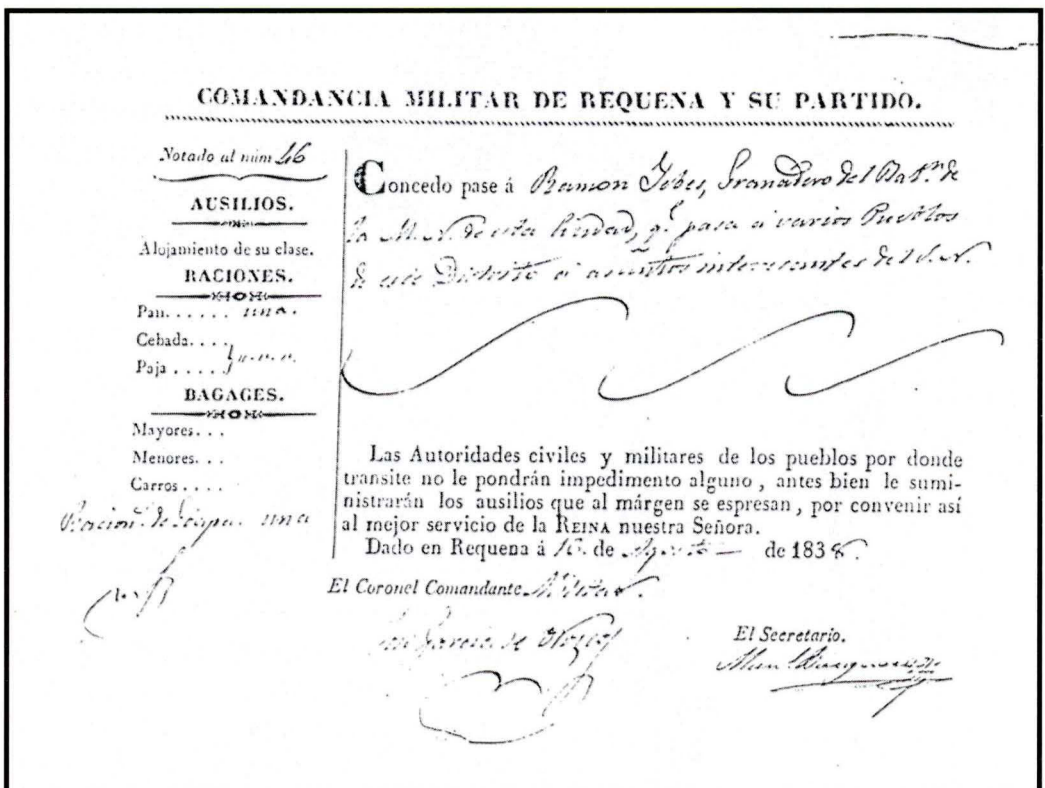 COMANDANCIA MILITAR DE REQUENA Y SU PARTIDO.
Notado al núm 46
AUSILIOS.
Alojamiento de su clase.
RACIONES.
Pan...... una.
Cebada....
Paja.....
BAGAGES.
Mayores...
Menores...
Carros....
Racion de una
Concedo pase á Ramon Granadero del Batn. de
la M. N. de esta Ciudad, q.e pasa á varios Pueblos
de este Distrito á asuntos interesantes del S. N.
Las Autoridades civiles y militares de los pueblos por donde
transite no le pondrán impedimento alguno, antes bien le sumi-
nistrarán los ausilios que al márgen se espresan, por convenir así
al mejor servicio de la REINA nuestra Señora.
Dado en Requena á de Agosto de 1838.
El Coronel Comandante Militar.
García de
El Secretario.